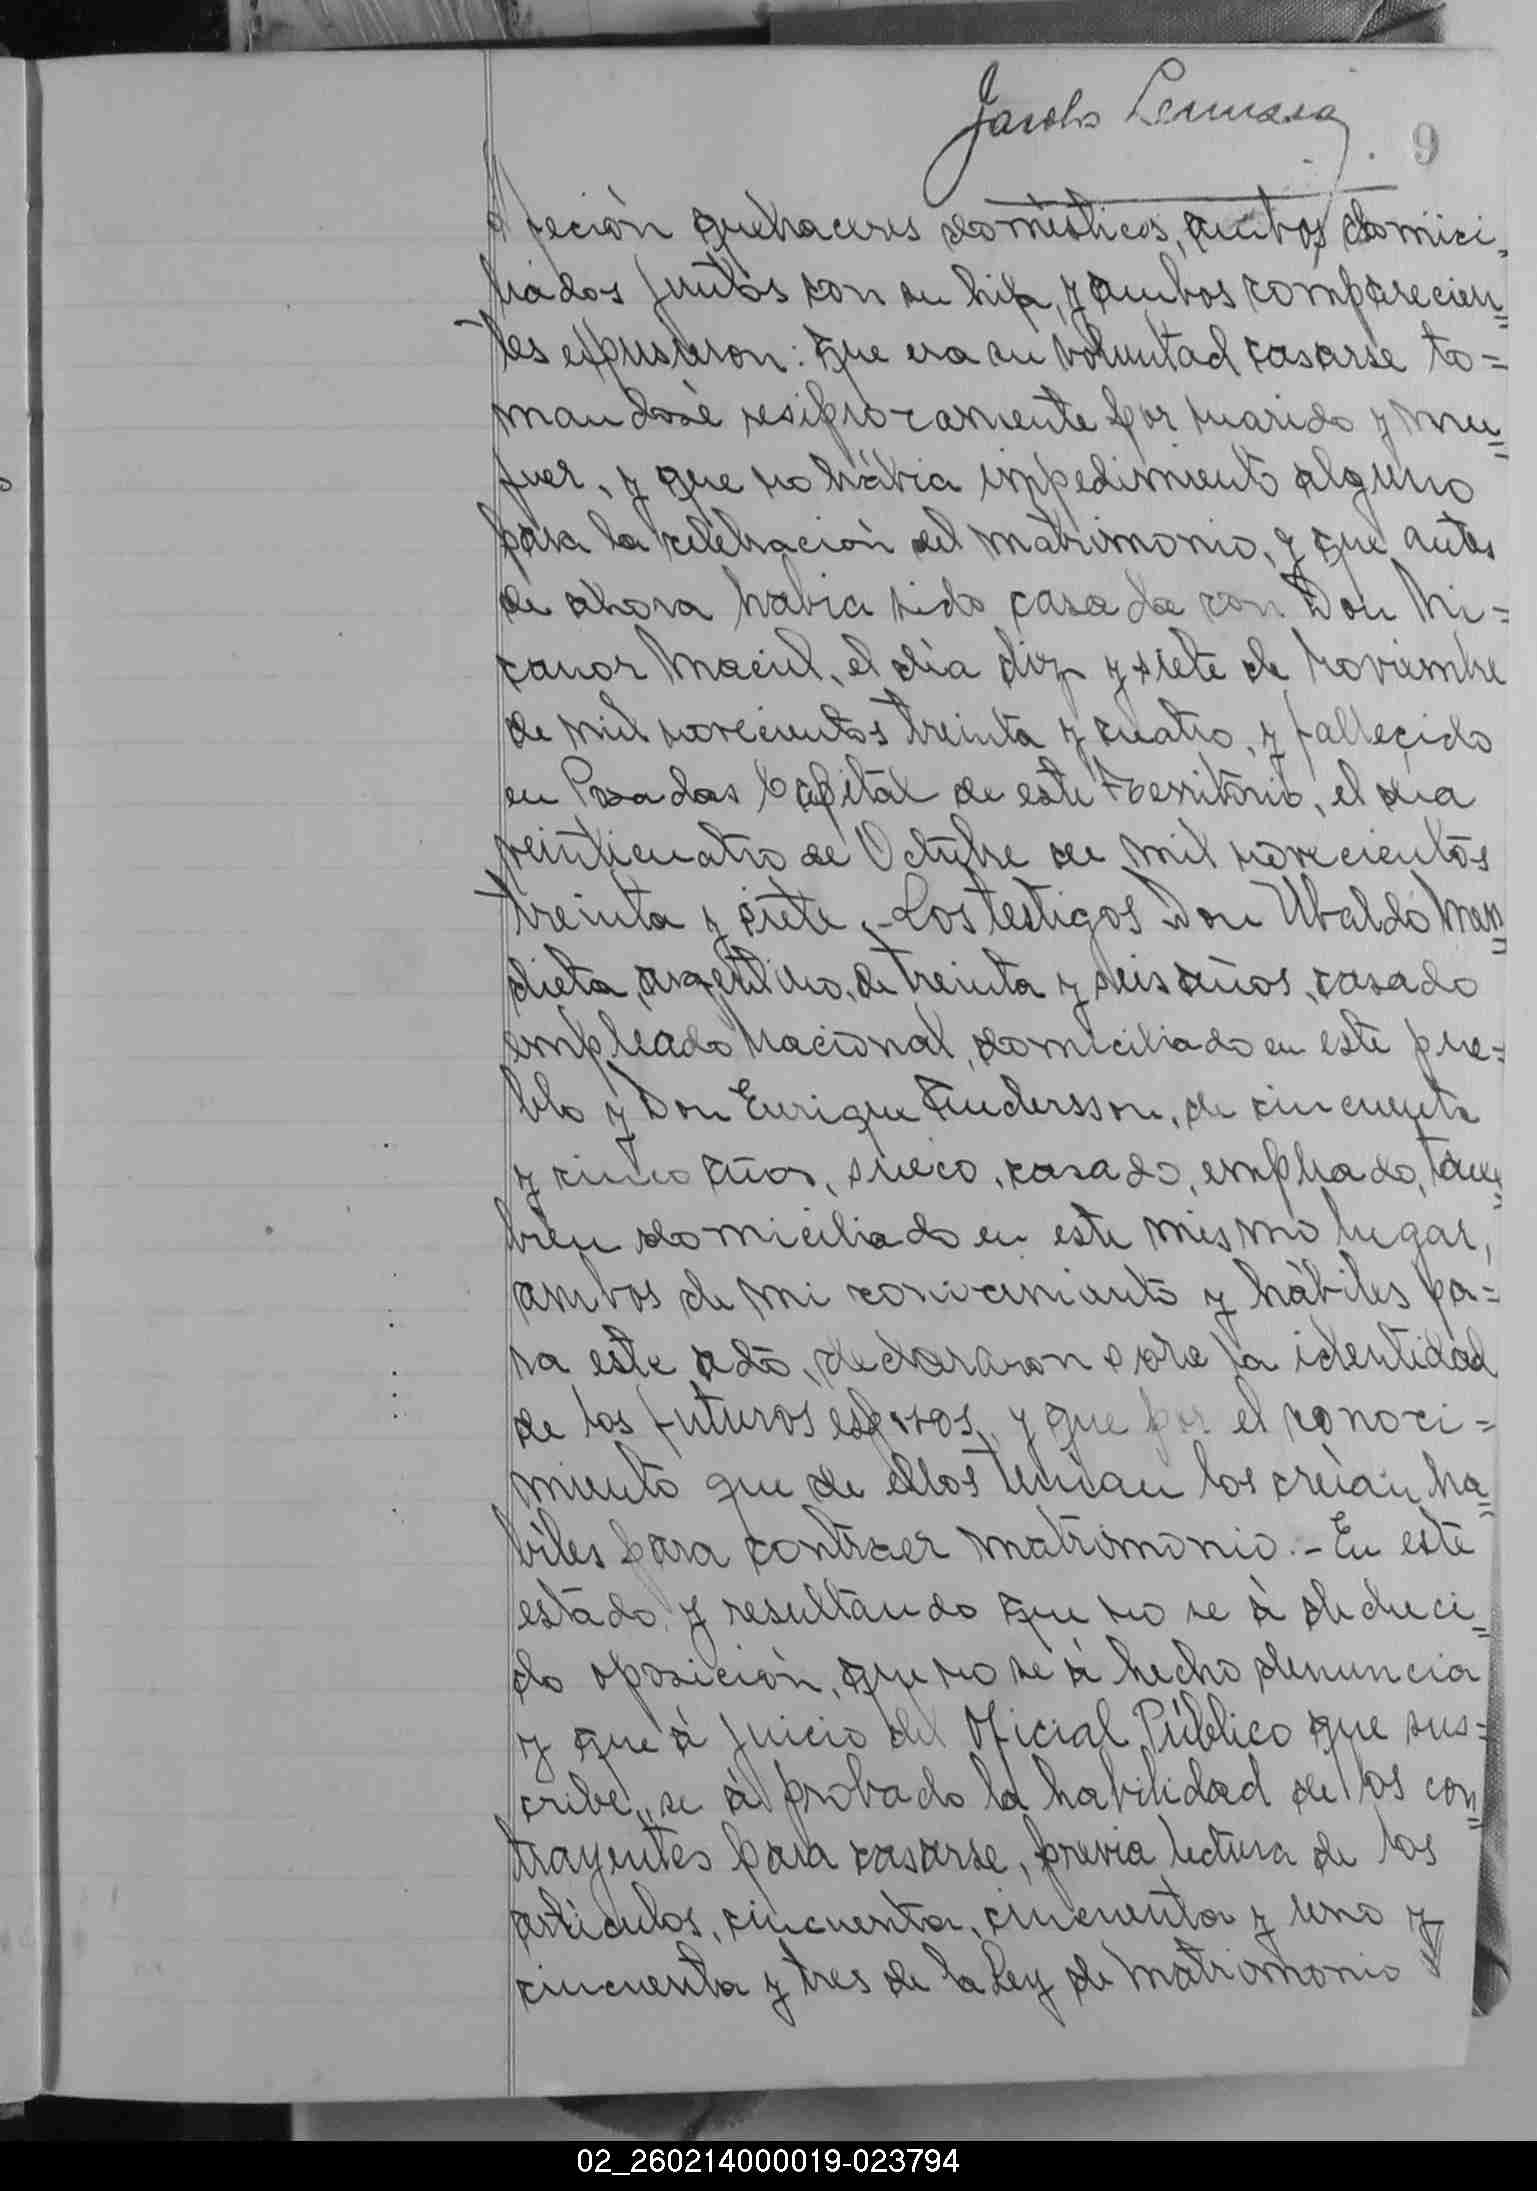 Jacobo
9
feción quehaceres domésticos, ambos domici
liados juntos con su hija, y ambos comparecien=
tes espusieron: que era su voluntad casarse to=
mandosè resiprocamente por marido y mu=
juer, y que no hàbia impedimiento alguno
para la celebración del matrimonio, y que antes
de ahora habia sido casada con Don Ni=
canor Maciel, el dia diez y siete de Noviembre
de mil novecientos treinta y cuatro, y fallecido
en Posadas Capital de este Territorio, el dia
veinticuatro de Octubre de mil novecientos
treinta y siete.- Los testigos Don Ubaldo Men=
dieta, argentino, de treinta y seis años, casado
empleado Nacional, domiciliado en este pue=
blo y Don Enrique Andersson, de cincuenta
y cinco años, sueco, casado, empleado, tam=
bien domiciliado en este mismo lugar,
ambos de mi conocimiento y hàbiles pa=
ra este acto, declararon sobre la identidad
de los futuros esposos, y que por el conoci=
miento que de ellos tenian los creían ha=
biles para contraer matrimonio.- En este
estado y resultando que no se à deduci=
do oposición, que no se à hecho denuncia
y que à juicio del Oficial Público que sus=
cribe, se à probado la habilidad de los con=
trayentes para casarse, previa lectura de los
artículos, cincuenta, cincuenta y uno y
cincuenta y tres de la Ley de Matrimonio
02_260214000019-023794